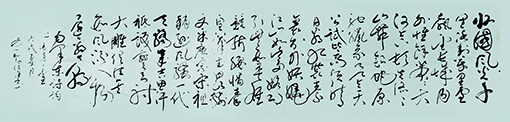 北国风光千
里冰封万里雪
飘望长城内
外惟余莽莽大
河上下顿失滔滔
山舞银蛇原
驰蜡象欲与天
公试比高须晴
日看红装素裹
分外妖娆
江山如此多娇
引无数英雄
竞折腰惜秦
皇汉武略输
文采唐宗宋祖
稍逊风骚一代
天骄成吉思汗
只识弯弓射
大雕俱往矣
数风流人物
还看今朝
毛泽东诗词